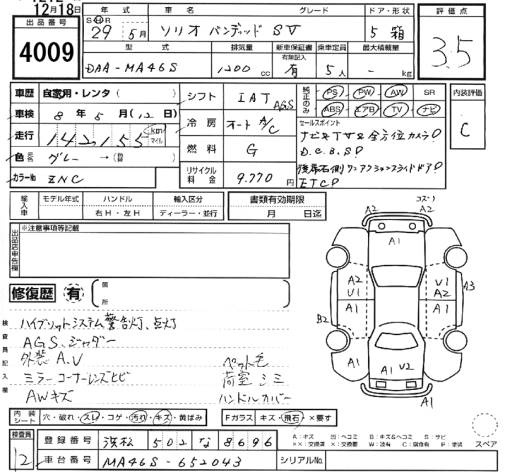 12月18日
出品番号
4009
年式 車名 グレード ドア・形状
S H R 29年5月 ソリオバンデッド SV 5 箱
評価点
3.5
型式 排気量 新車保証書 有無記入 乗車定員 最大積載量
DAA-MA46S 1200cc 有 5人 - kg
車歴 自家用・レンタ ( )
車検 8年 5月 (12日)
走行 142,155 km マイル
色 元色 グレー → (替)
カラーNo ZNC
シフト IAT AGS
冷房 オート A/C
燃料 G
リサイクル料金 9,770円
純正のみ PS PW AW SR
ABS エアB TV ナビ
セールスポイント
ナビ&TV& 全方位カメラ
D.C.B.S
後席右側ワンアクションスライドドア
ETC
内装評価
C
輸入車 モデル年式 年 ハンドル 右H・左H 輸入区分 ディーラー・並行
書類有効期限
月 日迄
出品店申告欄
※注意事項等記載
修復歴 有
箇所
検査員記入欄
ハイブリットシステム警告灯、点灯
AGS、ジャダー
外装 A.V
ミラーコーナーレンズヒビ
AWキズ
ペット毛
荷室 シミ
ハンドルカバー
コスリ
A2 A2
A1
A1
A2 V1
V1 A2
A3
B2
A1 A1
A1 V2
A1 A1
内装シート 穴・破れ・スレ・コゲ・汚れ・キズ・黄ばみ
Fガラス キズ・飛石・×要す
スペア
検査員
12
登録番号 浜松 502 な 8696
車台番号 MA46S-652043
シリアルNo.
A：キズ U：ヘコミ B：キズ&ヘコミ S：サビ
××：交換済 X：交換要 W：波有 C：腐食有 P：塗装